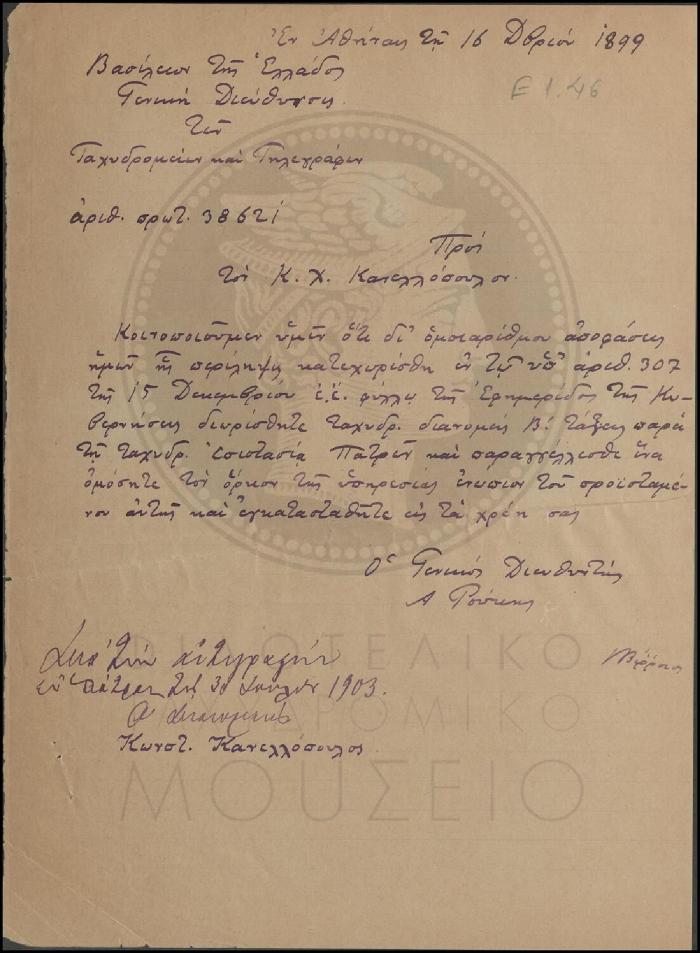 Ἐν Ἀθήναις τῇ 16 Δβρίου 1899
Ε 1.46
Βασίλειον τῆς Ἑλλάδος
Γενική Διεύθυνσις
Τῶν
Ταχυδρομείων καὶ Τηλεγράφων
ἀριθ. πρωτ. 38621
Πρὸς
τὸν Κ. Χ. Κανελλόπουλον.
Κοινοποιοῦμεν ὑμῖν ὅτι δι' ὁμοιαρίθμου ἀποφάσεως
ἡμῶν ἧς περίληψις κατεχωρίσθη ἐν τῷ ὑπ' ἀριθ. 307
τῆς 15 Δεκεμβρίου ἐ.ἔ. φύλλῳ τῆς Ἐφημερίδος τῆς Κυ-
βερνήσεως διωρίσθητε ταχυδρ. διανομεὺς Β: τάξεως παρὰ
τῇ ταχυδρ. ἐπιστασίᾳ Πατρῶν καὶ παραγγέλλεσθε ἵνα
ὀμόσητε τὸν ὅρκον τῆς ὑπηρεσίας ἐνώπιον τοῦ προϊσταμέ-
νου αὐτῆς καὶ ἐγκατασταθῆτε εἰς τὰ χρέη σας
Ὁ Γενικὸς Διευθυντής
Α
ἀντιγραφήν
ἐν Πάτραις τῇ 30 1903.
Ὁ
Κωνστ. Κανελλόπουλος
ΦΙΛΟΤΕΛΙΚΟ
ΤΑΧΥΔΡΟΜΙΚΟ
ΜΟΥΣΕΙΟ